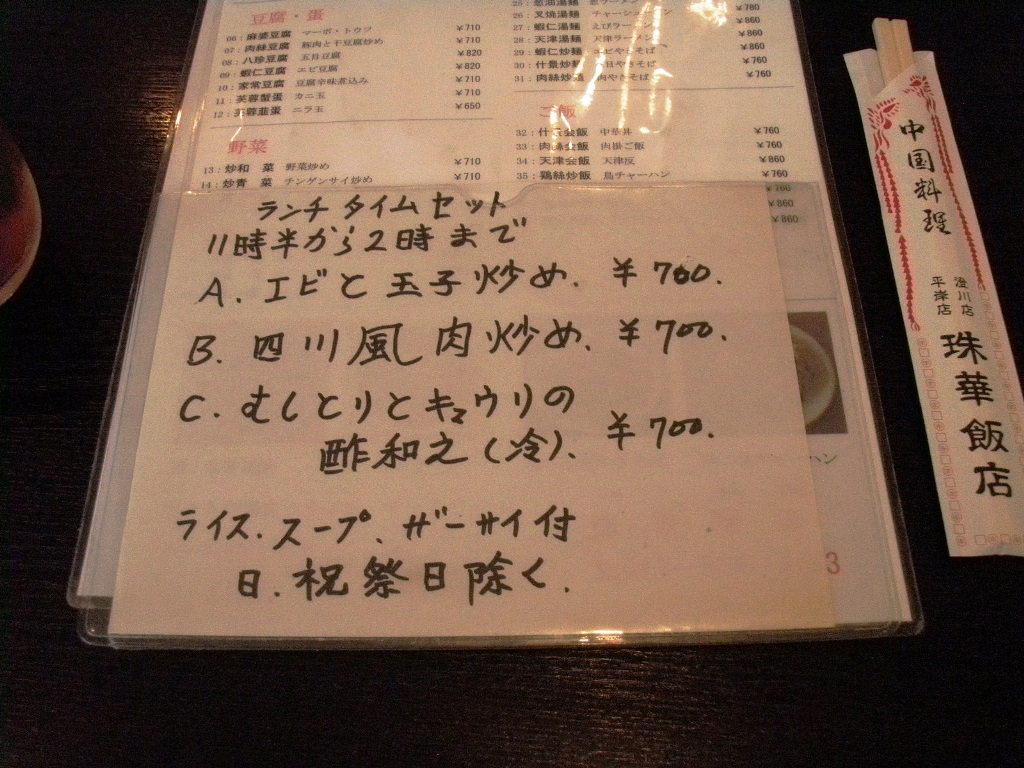 豆腐・蛋
06：麻婆豆腐 マーボ・トウフ ￥710
07：肉絲豆腐 豚肉と干豆腐炒め ￥710
08：八珍豆腐 五目豆腐 ￥820
09：蝦仁豆腐 エビ豆腐 ￥820
10：家常豆腐 豆腐辛味煮込み ￥710
11：芙蓉蟹蛋 カニ玉 ￥710
12：芙蓉韮蛋 ニラ玉 ￥650
野菜
13：炒和 菜 野菜炒め ￥710
14：炒青 菜 チンゲンサイ炒め ￥710
26：叉焼湯麺 チャーシュー ￥860
27：蝦仁湯麺 えびラーメン ￥860
28：天津湯麺 天津ラーメン ￥860
29：蝦仁炒麺 エビやきそば ￥860
30：什景炒麺 五目やきそば ￥760
31：肉絲炒麺 肉やきそば ￥760
ご飯
32：什景会飯 中華丼 ￥760
33：肉絲会飯 肉掛ご飯 ￥760
34：天津会飯 天津飯 ￥860
35：鶏絲炒飯 鳥チャーハン ￥760
￥760
￥860
￥860
ランチタイムセット
11時半から2時まで
A. エビと玉子炒め. ￥700.
B. 四川風肉炒め. ￥700.
C. むしとりとキュウリの
酢和え(冷). ￥700.
ライス.スープ.ザーサイ付
日.祝祭日除く.
ハン
3
中国料理
澄川店
平岸店
珠華飯店